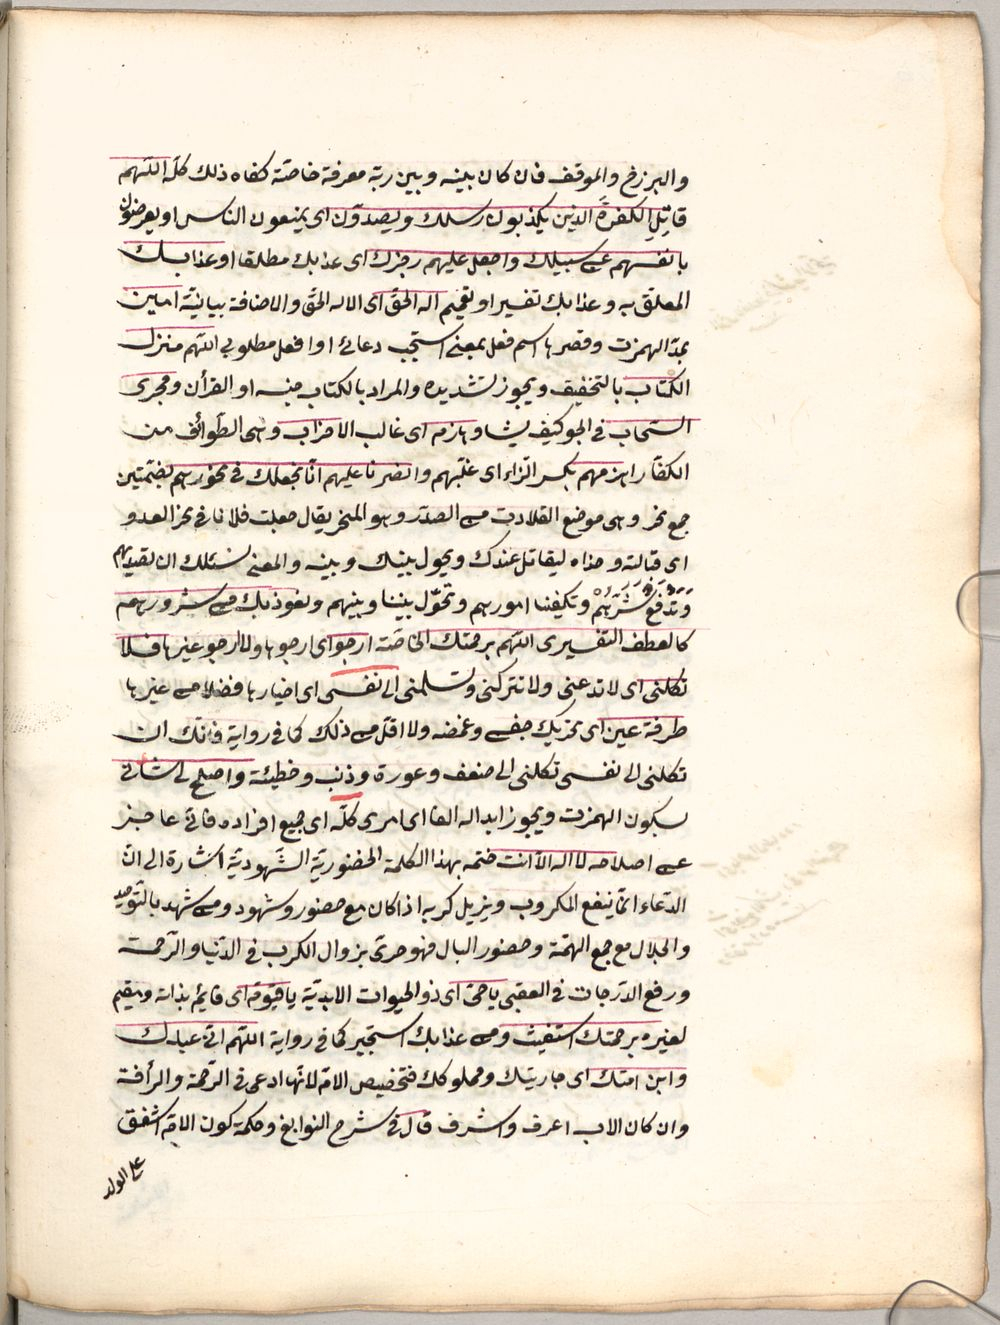 والبرزخ والموقف فان كان بينه وبين ربّه معرفة خاصّة كفاه ذلك كلّه اللّهم
قاتِلِ الكفرةَ الذين يكذبون رسلك ويصدّون اى يمنعون الناس او يعرضون
بانفسهم عن سبيلك واجعل عليهم رجزك اى عذابك مطلقا او عذابك
المعلّق به وعذابك تفسير او تعميم اله الحقّ اى الاله الحقّ والاضافة بيانيّة امين
بمدّ الهمزت وقصرها اسم فعل بمعنى استجب دعائى او افعل مطلوبي اللّهم منزل
الكتاب بالتخفيف ويجوز تشديده والمراد بالكتاب جنسه او القرأن ومجرى
السّحاب فى الجوّ كيف يشا وهازم اى غالب الاحزاب وهى الطّوائف من
الكفّار اهزمهم بكسر الزّاء اى غلّبهم وانصرنا عليهم انّا نجعلك فى نحورهم بضمّتين
جمع نحر وهى موضع القلادت من الصدر وهو المنحر يقال جعلت فلانا فى نحر العدو
اى قبالته وحذاه ليقاتل عندك ويحول بينك وبينه والمعنى نسئلك ان تصدّهم
وَتَدْفَعَ شَرَّهُمْ وتكيفنا امورهم وتحوّل بيننا وبينهم ونعوذ بك من شرورهم
كالعطف التفسيرى اللّهم برحمتك الخاصّة ارجو اى ارجوها ولا ارجو غيرها فلا
تكلنى اى لا تدعنى ولا تتركنى وتسلّمنى الى نفسى اى اختيارها فضلا من غيرها
طرفة عين اى تحريك جفن وغمضه ولا اقلّ من ذلك كما فى رواية فانّك ان
تكلنى الى نفسى تكلنى الى ضعف وعورة وذنب وخطيئة واصلح لى شانى
بسكون الهمزت ويجوز ابداله الفا اى امرى كلّه اى جميع افراده فانّى عاجز
عن اصلاحه لا اله الّا انت ختمه بهذا الكلمة الحضوريّة الشّهوديّة اشارة الى انّ
الدّعاء انّما ينفع المكروب ويزيل كربه اذا كان مع حضور وشهود ومن شهد بالتّوحيد
والجلال مع جمع الهمّة وحضور البال فهو حرىّ بزوال الكرب فى الدّنيا والرّحمة
ورفع الدّرجات فى العقبى يا حىّ اى ذو الحيوات الابديّة يا قيّوم اى قائم بذاته ومقيم
لغيره برحمتك استغيث ومن عذابك استجير كما فى رواية اللّهم انّى عبدك
وابن امتك اى جاريتك ومملوكك فتخصيص الامّ لانّها ادعى فى الرّحمة والرأفة
وان كان الاب اعرف واشرف قال فى شرح النوابغ وحكمة كون الامّ اشفق
على الولد